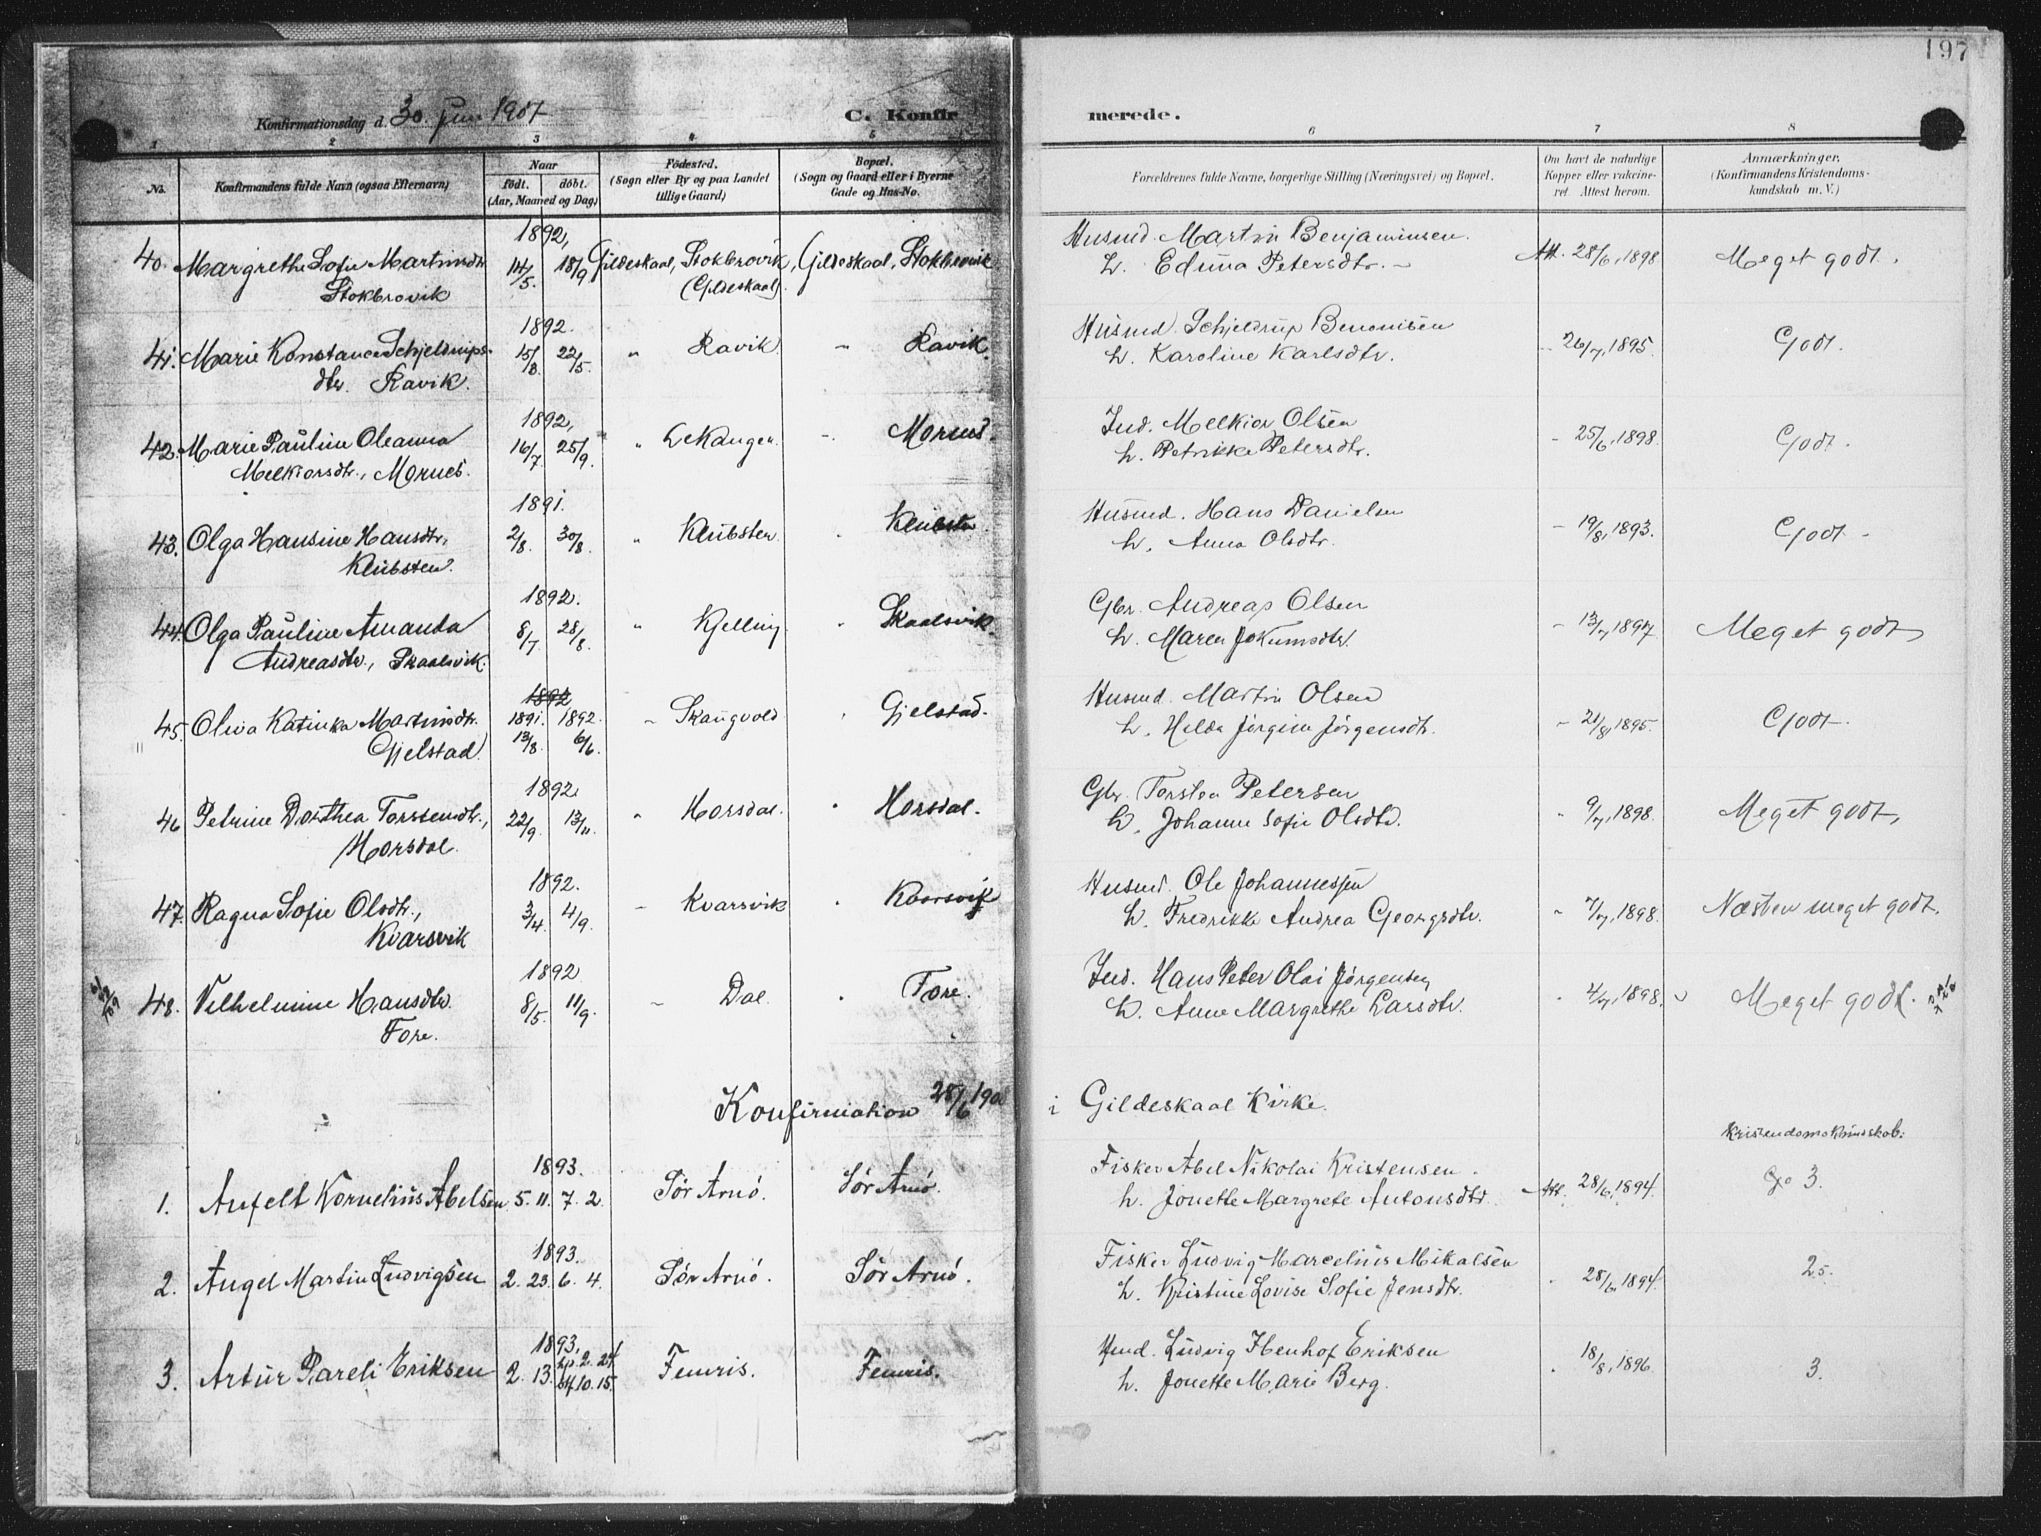 197
Konfirmationsdag d. 30. juni 1907
C. Konfirmerede.
1 2 3 4 5 6 7 8
No.
Konfirmandens fulde Navn (ogsaa Efternavn)
Naar
født. døbt.
(Aar, Maaned og Dag)
Födested.
(Sogn eller By og paa Landet
tillige Gaard)
Bopæl.
(Sogn og Gaard eller i Byerne
Gade og Hus-No.
Forældrenes fulde Navne, borgerlige Stilling (Næringsvei) og Bopæl.
Om havt de naturlige
Kopper eller vakcine-
ret Attest herom.
Anmærkninger.
(Konfirmandens Kristendoms-
kundskab m. V.)
1892,
40. Margrethe Sofie Martinsdtr. 14/5. 18/9 Gildeskaal, Stokbrovik, Gildeskaal, Stokbrovik
Stokbrovik (Gildeskaal).
Husmd. Martin Benjaminsen.
h. Edina Petersdtr. Att. 28/6, 1898 Meget godt.
1892.
41. Marie Konstance Schjeldrups- 15/3. 22/5. " Ravik. " Ravik.
dtr. Ravik.
Husmd. Schjeldrup Benonisen
h. Karoline Karlsdtr. - 26/7, 1895. Godt.
1892,
42. Marie Pauline Oleanna 16/7 25/9. " Lekanger. " Mornes.
Melkiorsdtr., Mornes.
Ind. Melkior Olsen
h. Petrikke Petersdtr. - 25/6, 1898. Godt.
1891.
43. Olga Hansine Hansdtr, 2/8. 30/8. " Klubsten " Klubsten
Klubsten.
Husmd. Hans Danielsen
h. Anna Olsdtr. - 19/8, 1893. Godt -
1892.
44. Olga Pauline Amanda 8/7 28/8. " Kjelling " Skaalsvik.
Andreasdtr., Skaalsvik.
Gbr. Andreas Olsen
h. Maren Jokumsdtr. - 13/7, 1897 Meget godt,
1892
45. Oliva Katinka Martinsdtr. 1891. 1892. " Skaugvold " Gjelstad.
Gjelstad 13/8. 6/6.
Husmd. Martin Olsen
h. Hilda Jørgine Jørgensdtr. - 21/8, 1895. Godt.
1892
46 Petrine Dorthea Torstensdtr., 22/9. 13/11. " Horsdal. " Horsdal.
Horsdal.
Gbr. Torsten Petersen
h. Johanne Sofie Olsdtr. - 9/7, 1898. Meget godt,
1892.
47. Ragna Sofie Olsdtr., 3/4. 4/9. " Kvarsvik " Kvarsvik
Kvarsvik
Husmd. Ole Johannessen
h. Fredrikke Andrea Georgsdtr. - 7/7, 1898. Næsten meget godt.
1892
48. Vilhelmine Hansdtr. 8/5. 11/9. " Dal " Fore.
Fore.
Ind. Hans Peter Olai Jørgensen
h. Anne Margrethe Larsdtr. - 4/7, 1898. Meget godt.
Konfirmation 28/6 190 i Gildeskaal Kirke.
Kristendomskundskab:
1893.
1. Anfelt Kornelius Abelsen 5. 11. 7. 2. Sør Arnø. Sør Arnø.
Fisker Abel Nikolai Kristensen.
h. Jonette Margrete Antonsdtr. Att. 28/6, 1894. 3.
1893.
2. Angel Martin Ludvigsen 2. 23. 6. 4. Sør Arnø. Sør Arnø.
Fisker Ludvig Marcelius Mikalsen
h. Kristine Lovise Sofie Jensdtr. - 28/6, 1894. 2,5.
1893,
3. Artur Pareli Eriksen 2. 13. 2. 24. 10. 15. Femris. Femris.
Hmd. Ludvig Ibenhof Eriksen
h. Jonette Marie Berg. 18/8, 1896 3.